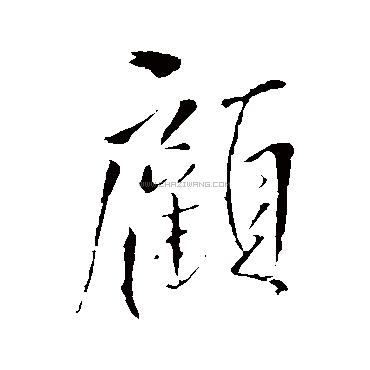 顧
WWW.CHAZIWANG.COM